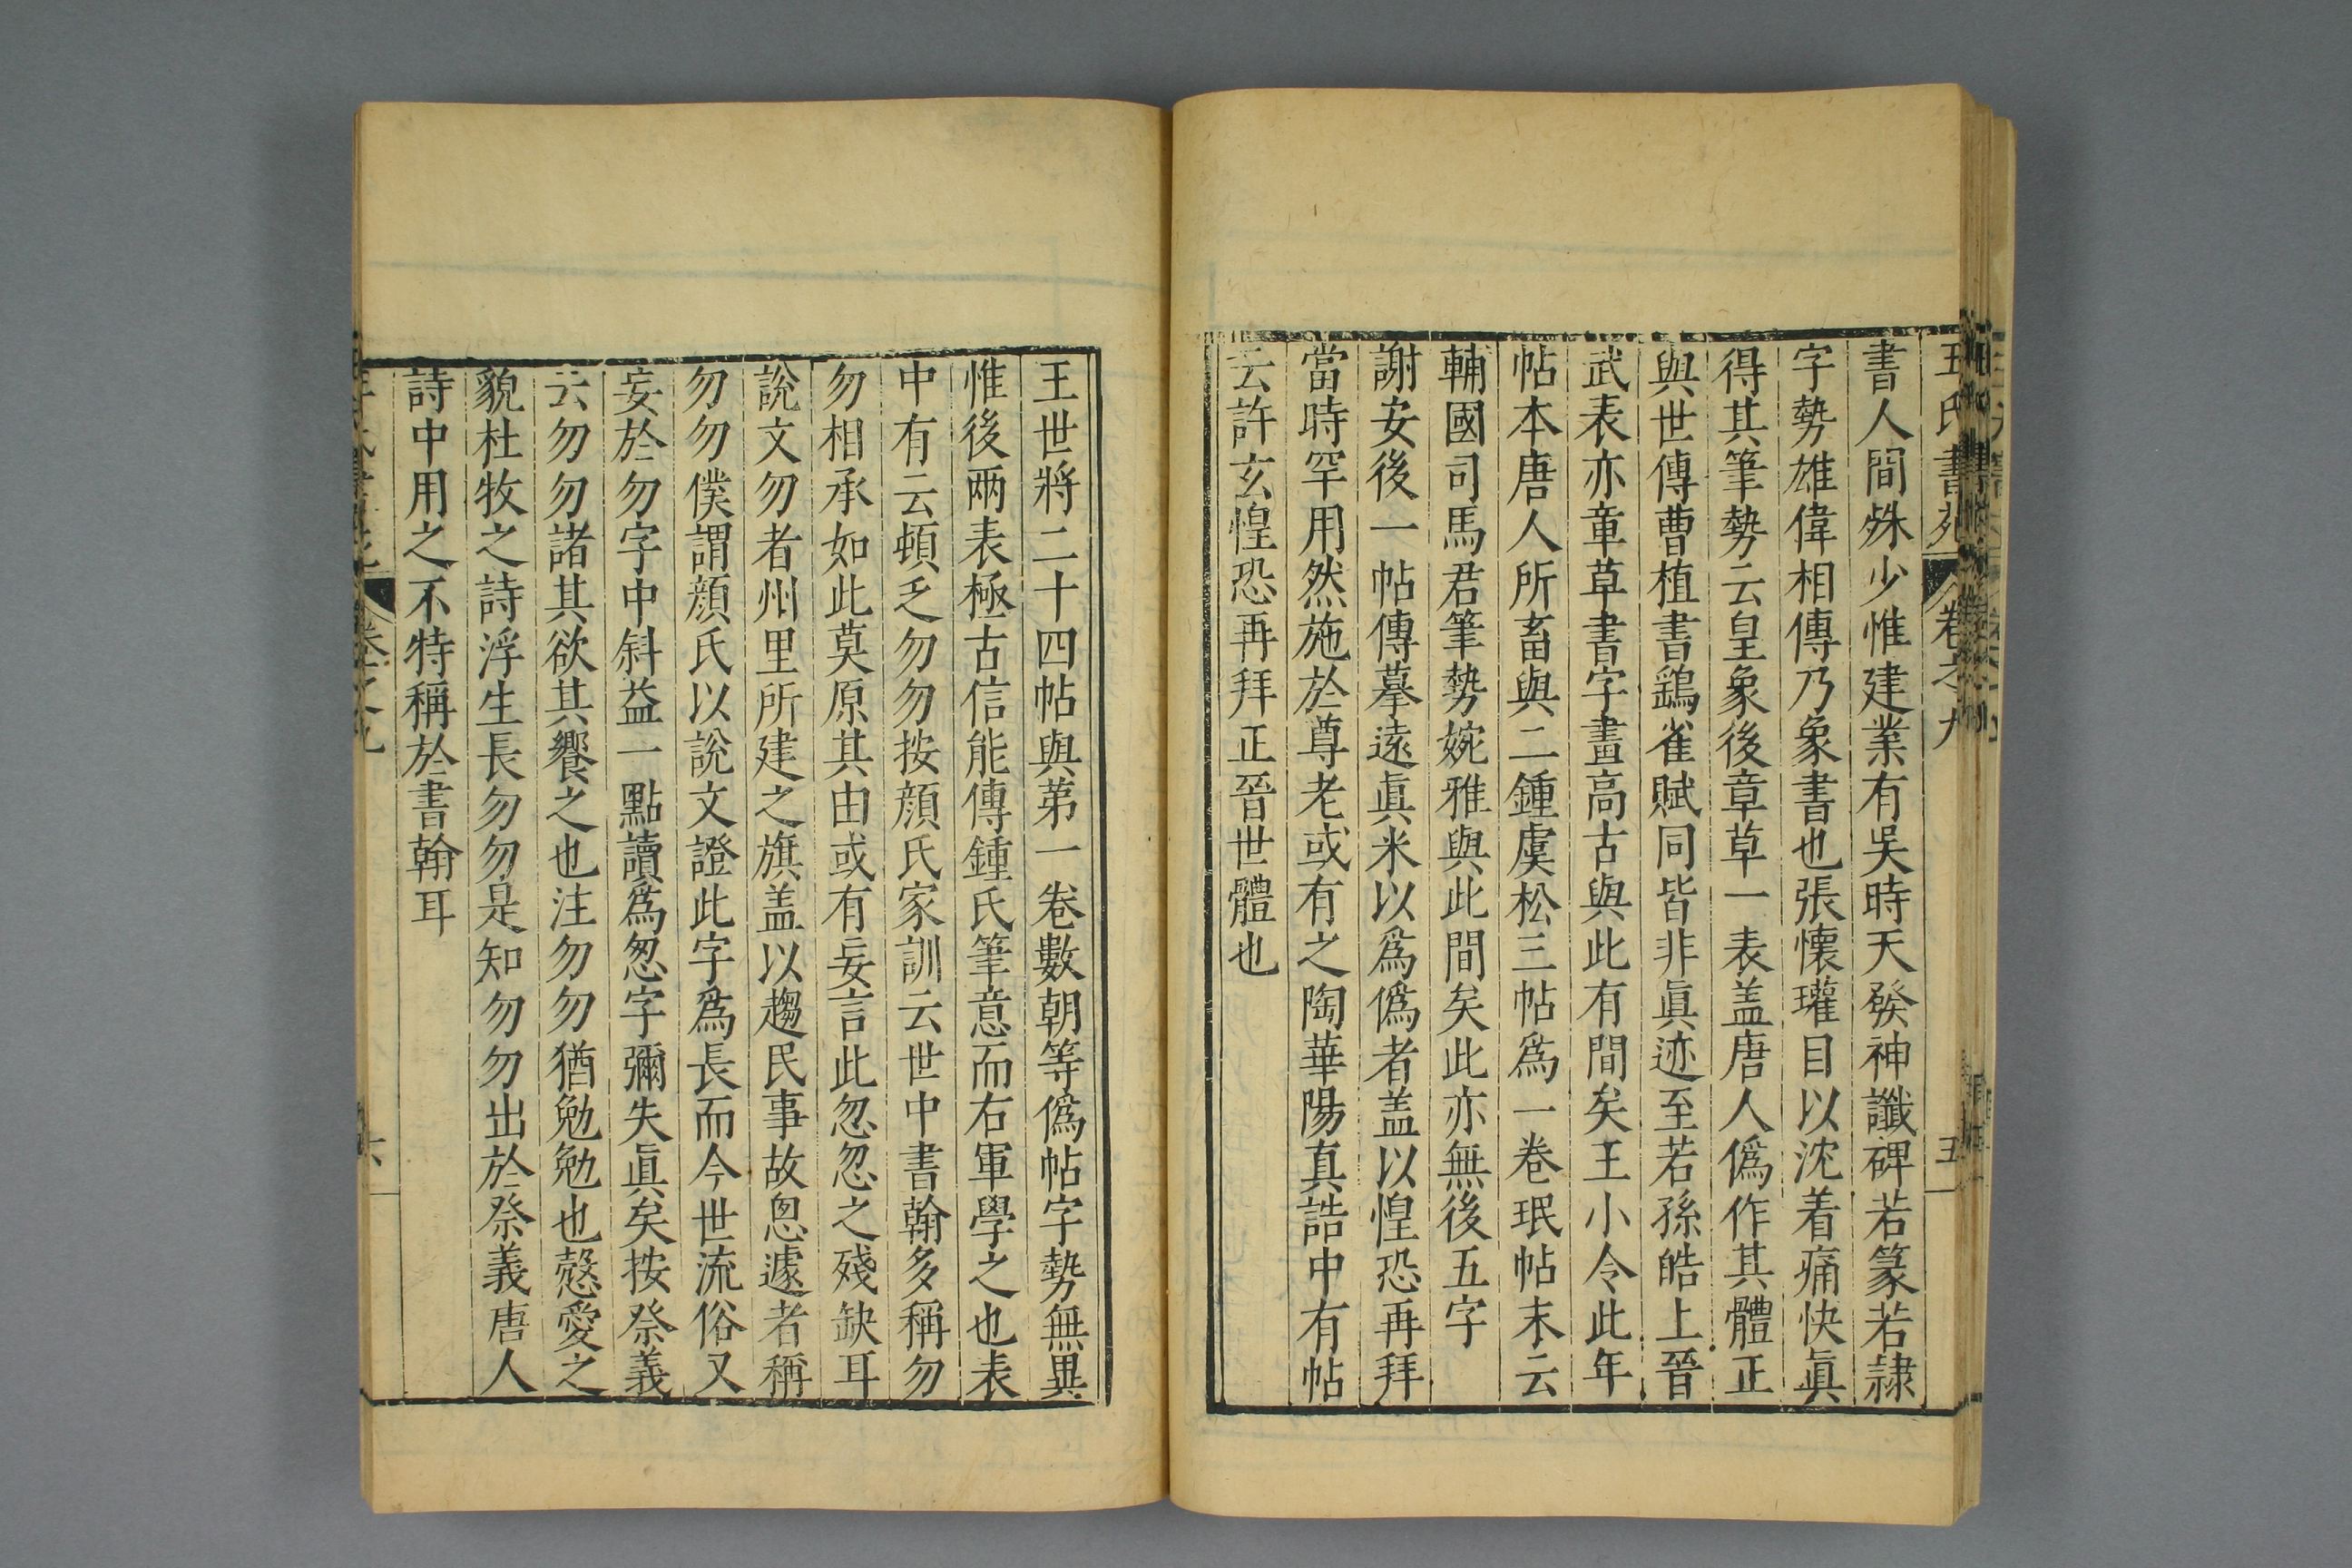 王氏書苑 卷之九 五
書人間殊少惟建業有吳時天發神讖碑若篆若隷
字勢雄偉相傳乃象書也張懷瓘目以沈着痛快眞
得其筆勢云皇象後章草一表盖唐人僞作其體正
與世傳曹植書鷂雀賦同皆非眞迹至若孫皓上晉
武表亦章草書字畫高古與此有間矣王小令此年
帖本唐人所畜與二鍾虞松三帖爲一卷珉帖末云
輔國司馬君筆勢婉雅與此間矣此亦無後五字
謝安後一帖傳摹遠眞米以爲僞者盖以惶恐再拜
當時罕用然施於尊老或有之陶華陽真誥中有帖
云許玄惶恐再拜正晉世體也
王世將二十四帖與第一卷數朝等僞帖字勢無異
惟後兩表極古信能傳鍾氏筆意而右軍學之也表
中有云頓乏勿勿按顔氏家訓云世中書翰多稱勿
勿相承如此莫原其由或有妄言此忽忽之殘缺耳
說文勿者州里所建之旗盖以趨民事故悤遽者稱
勿勿僕謂顔氏以說文證此字爲長而今世流俗又
妄於勿字中斜益一點讀爲怱字彌失眞矣按祭義
云勿勿諸其欲其饗之也注勿勿猶勉勉也慤愛之
貌杜牧之詩浮生長勿勿是知勿勿出於祭義唐人
詩中用之不特稱於書翰耳
卷之九 六